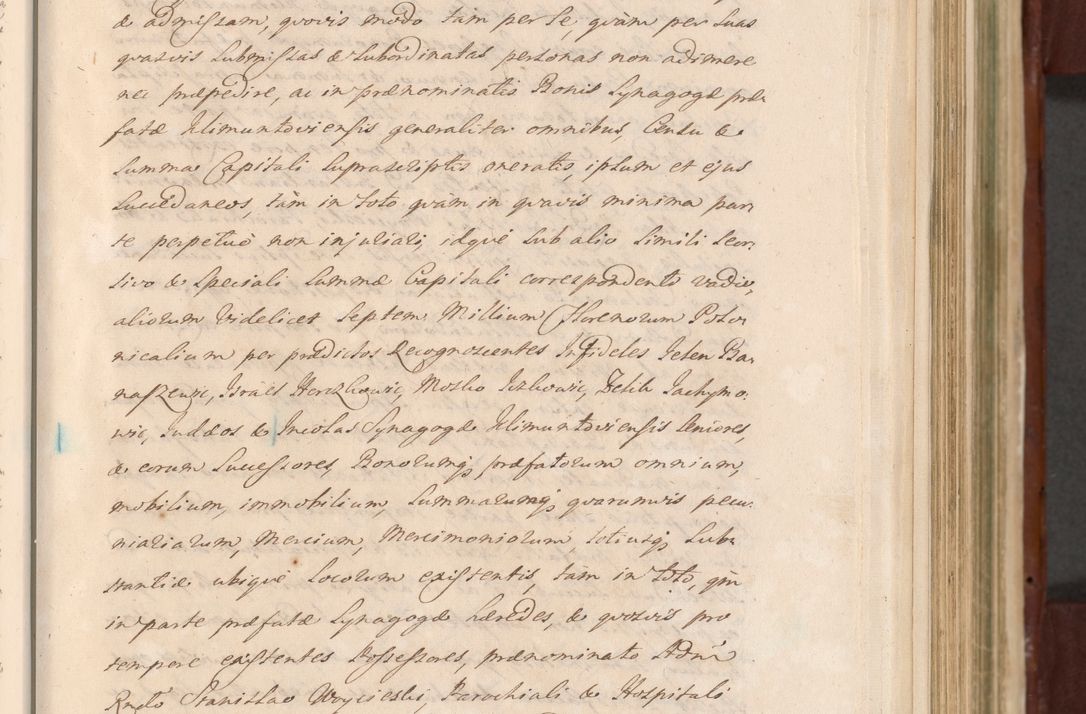 & admissam, quovis modo tàm per se, quàm per suas
quasvis submissas & subordinatas personas non adimere
nec præpedire, ac in prænominatis Bonis Synagogæ præ
fatæ Klimuntoviensis generaliter omnibus, Censu &
summa Capitali suprascriptis oneratis, ipsum et ejus
succedaneos, tàm in toto quàm in quavis minima par
te perpetuò non injuriari, idque sub alio simili seor
sivo & speciali summæ Capitali correspondente vadio,
aliorum videlicet septem Millium Florenorum Polo
nicalium per prædictos Recognoscentes Infideles Jelen Ba
naszewic, Israel Herszkowic, Mosko Iczkowic, Felik Jachymo
wic, Judæos & Incolas Synagogæ Klimuntoviensis seniores,
& eorum successores, Bonorumq; præfatorum omnium,
mobilium, immobilium, summarumq; quarumvis pecu
niariarum, Mercium, Mercimoniorum, totiusq; sub
stantiæ ubique locorum existentis, tàm in toto, qm
in parte præfatæ Synagogæ hæredes, & quosvis pro
tempore existentes Possessores, prænominato Adm
Rndo Stanislao Woyciecki, Parochiali & Hospitali